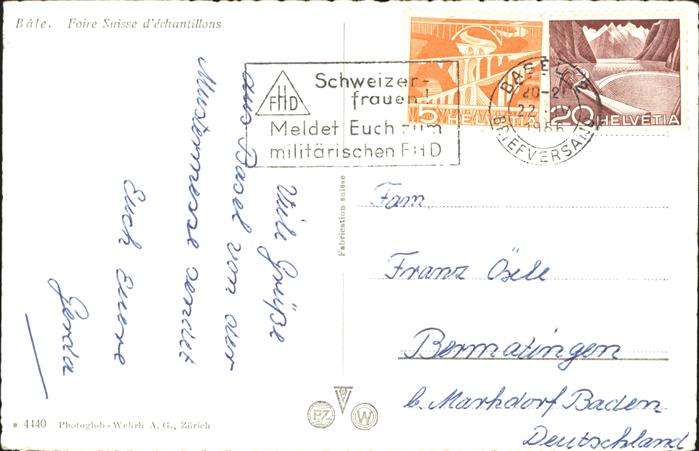 Bâle. Foire Suisse d'échantillons
FHD
Schweizer-
frauen!
Meldet Euch zum
militärischen FHD
5 HELVETIA
20 HELVETIA
BASEL 2
20-21
22. IV
1956
BRIEFVERSAND
Viele Grüße
aus Basel von der
Mustermesse sendet
Euch Eure
Gerda
Fabrication suisse
Fam.
Franz Osele
Bermatingen
b. Markdorf Baden
Deutschland
PZ
W
4440 Photoglob-Wehrli A. G., Zürich